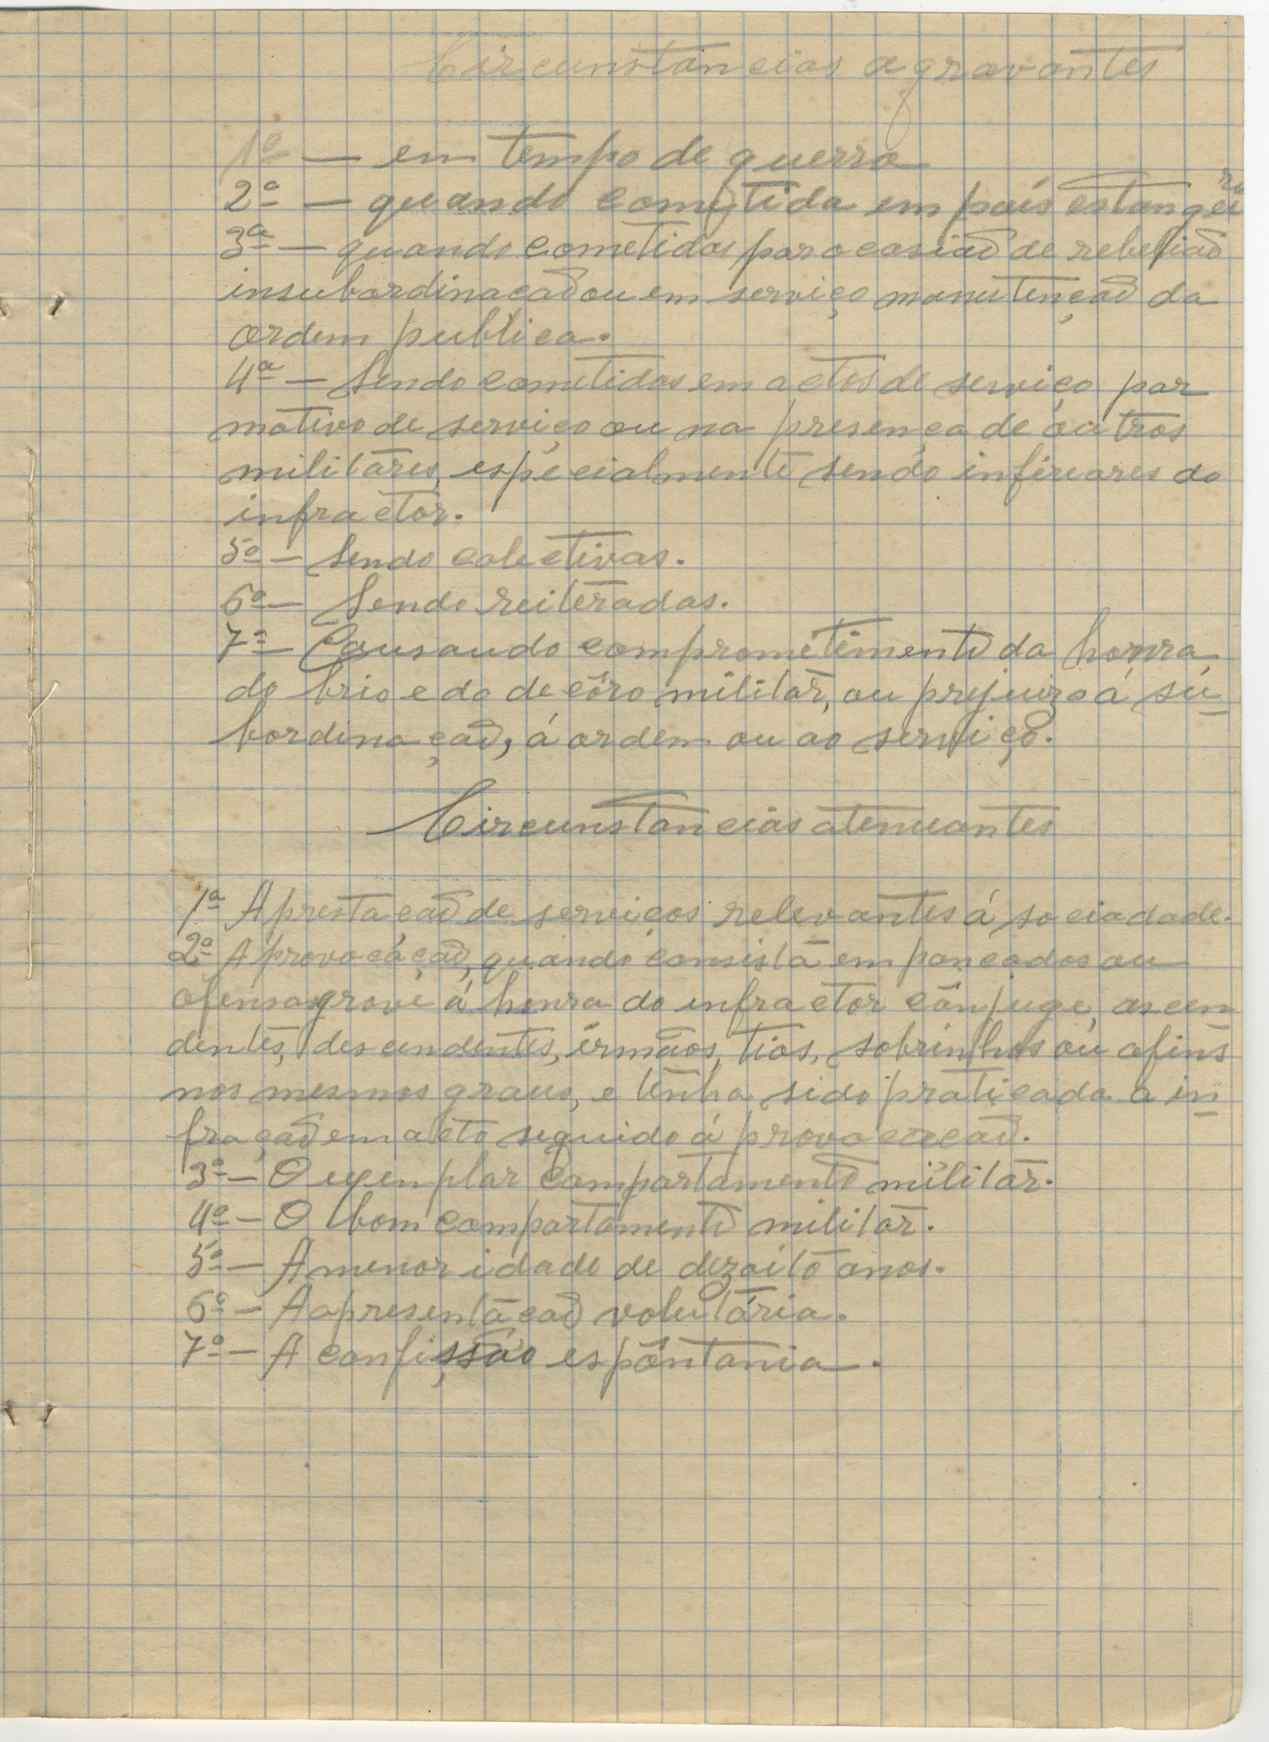 Circunstancias agravantes
1º — em tempo de guerra
2ª — quando cometida em país estangeiro
3ª — quando cometidas por ocasiaõ de rebeliaõ
insubordinaçaõ ou em serviço manutençaõ da
ordem publica.
4ª — Sendo cometidas em actos de serviço por
motivo de serviço ou na presença de outros
militares, especialmente sendo infiriores do
infractor.
5ª — Sendo colectivas.
6ª — Sendo reiteradas.
7ª — Causando comprometimento da honra
do brio e do decôro militar, ou prejuizo á su-
bordinaçaõ, á ordem ou ao serviço.
Circunstancias atenuantes
1ª A prestaçaõ de serviços relevantes á sociadade.
2ª A provocaçaõ, quando consista em pancadas ou
ofensa grave á honra do infractor cônjuge, ascen
dentes, descendentes, irmãos, tios, sobrinhos ou afins
nos mesmos graus, e tenha sido praticada a in-
fraçaõ em acto seguido á provocacaõ.
3ª — O exemplar comportamento militar.
4ª — O bom comportamento militar.
5ª — A menor idade de dezoito anos.
6ª — A apresentaçaõ volutária.
7ª — A confissão espôntania.